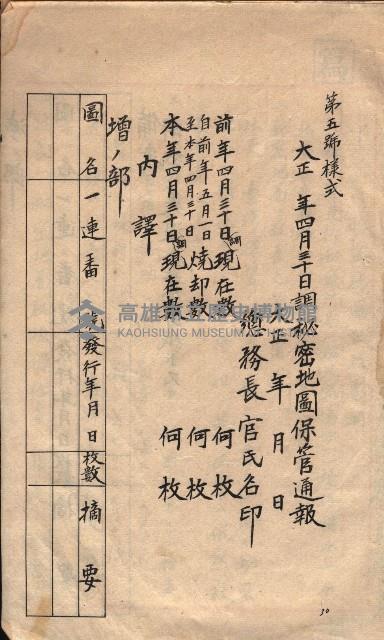 第五號樣式
大正 年四月三十日調祕密地圖保管通報
大正 年 月 日
總務長官氏名印
前年四月三十日調現在數 何枚
自前年五月一日至本年四月三十日燒却數 何枚
本年四月三十日調現在數 何枚
內譯
增ノ部
圖名 一連番號 發行年月日 枚數 摘要
高雄市立歷史博物館
KAOHSIUNG MUSEUM OF HISTORY
30